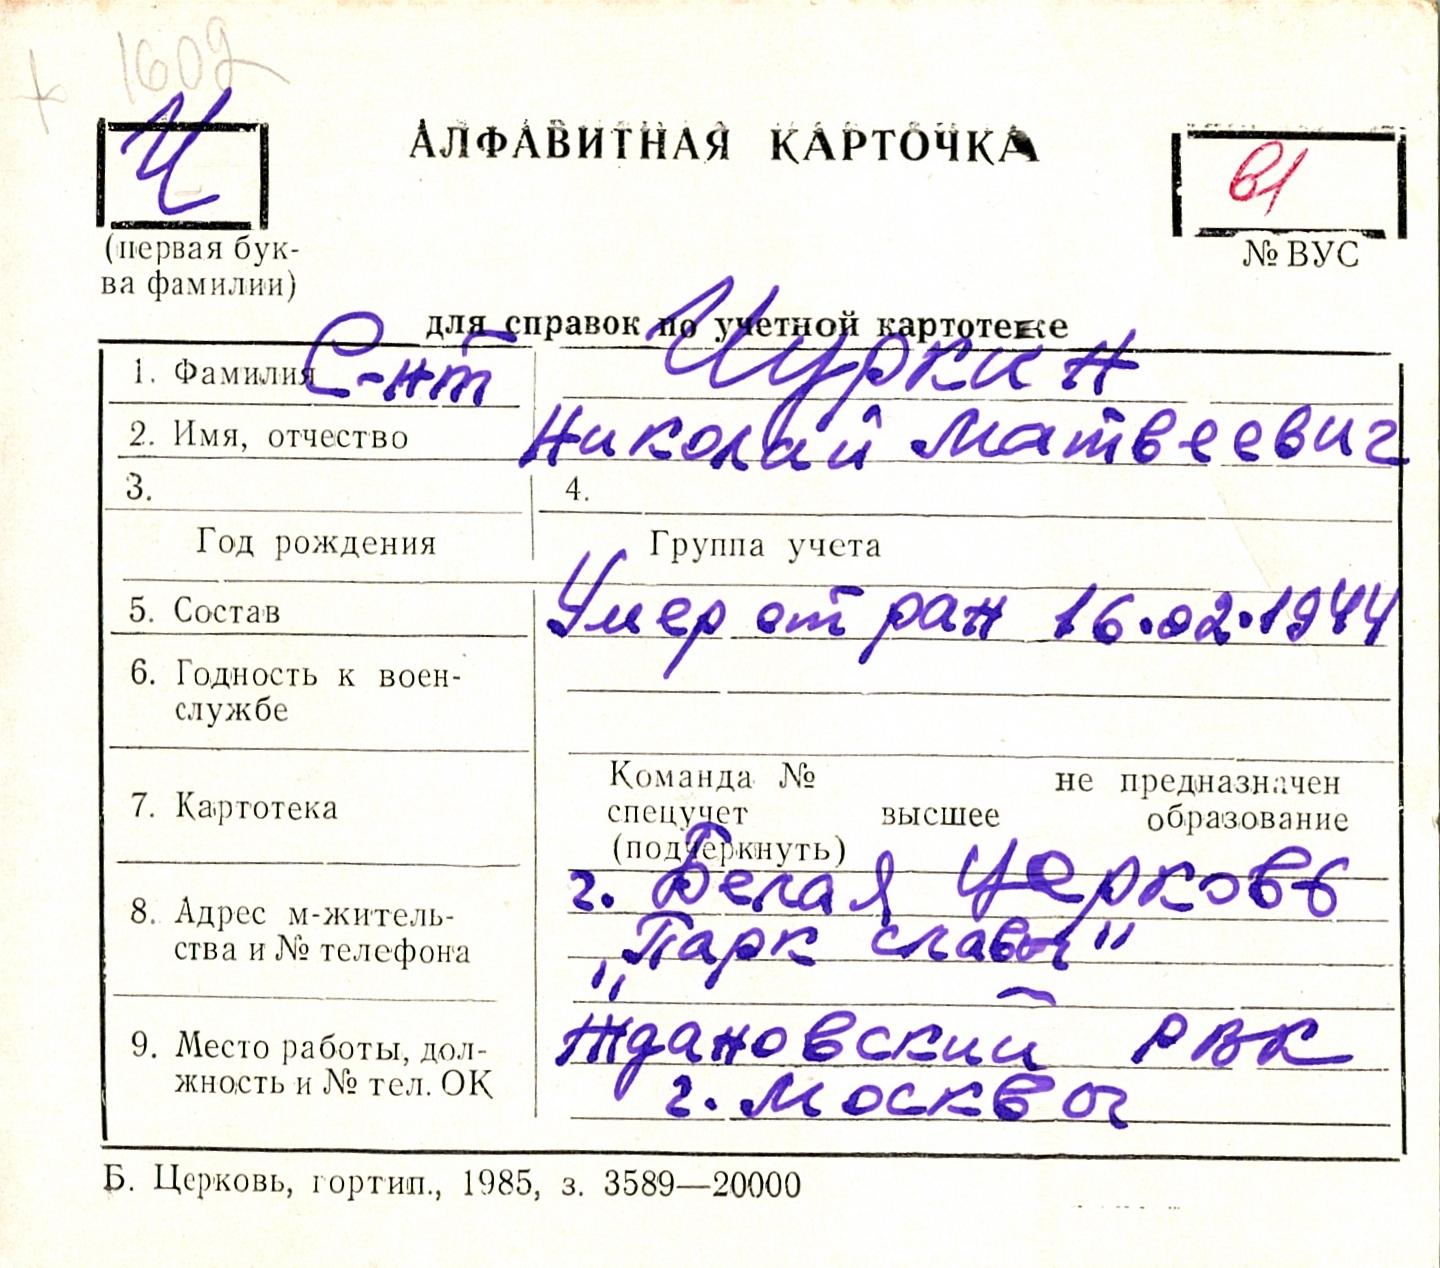 + 1602
Ч
АЛФАВИТНАЯ КАРТОЧКА
(первая бук-
ва фамилии)
№ ВУС
для справок по учетной картотеке
1. Фамилия С-нт Чуркин
2. Имя, отчество Николай Матвеевич
3. 4.
Год рождения Группа учета
5. Состав Умер от ран 16.02.1944
6. Годность к воен-
службе
Команда № не предназначен
7. Картотека спецучет высшее образование
(подчеркнуть)
г. Белая Церковь
8. Адрес м-житель-
ства и № телефона „Парк славы"
9. Место работы, дол- Ждановский РВК
жность и № тел. ОК г. Москвы
Б. Церковь, гортип., 1985, з. 3589—20000